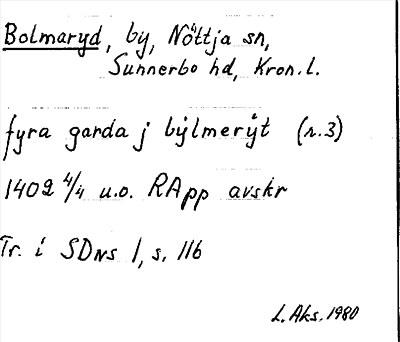 Bolmaryd, by, Nöttja sn,
Sunnerbo hd, Kron. l.
fyra garda j bylmeryt (r.3)
1402 4/4 u.o. RApp avskr
Tr. i SDns 1, s. 116
L. Aks. 1980